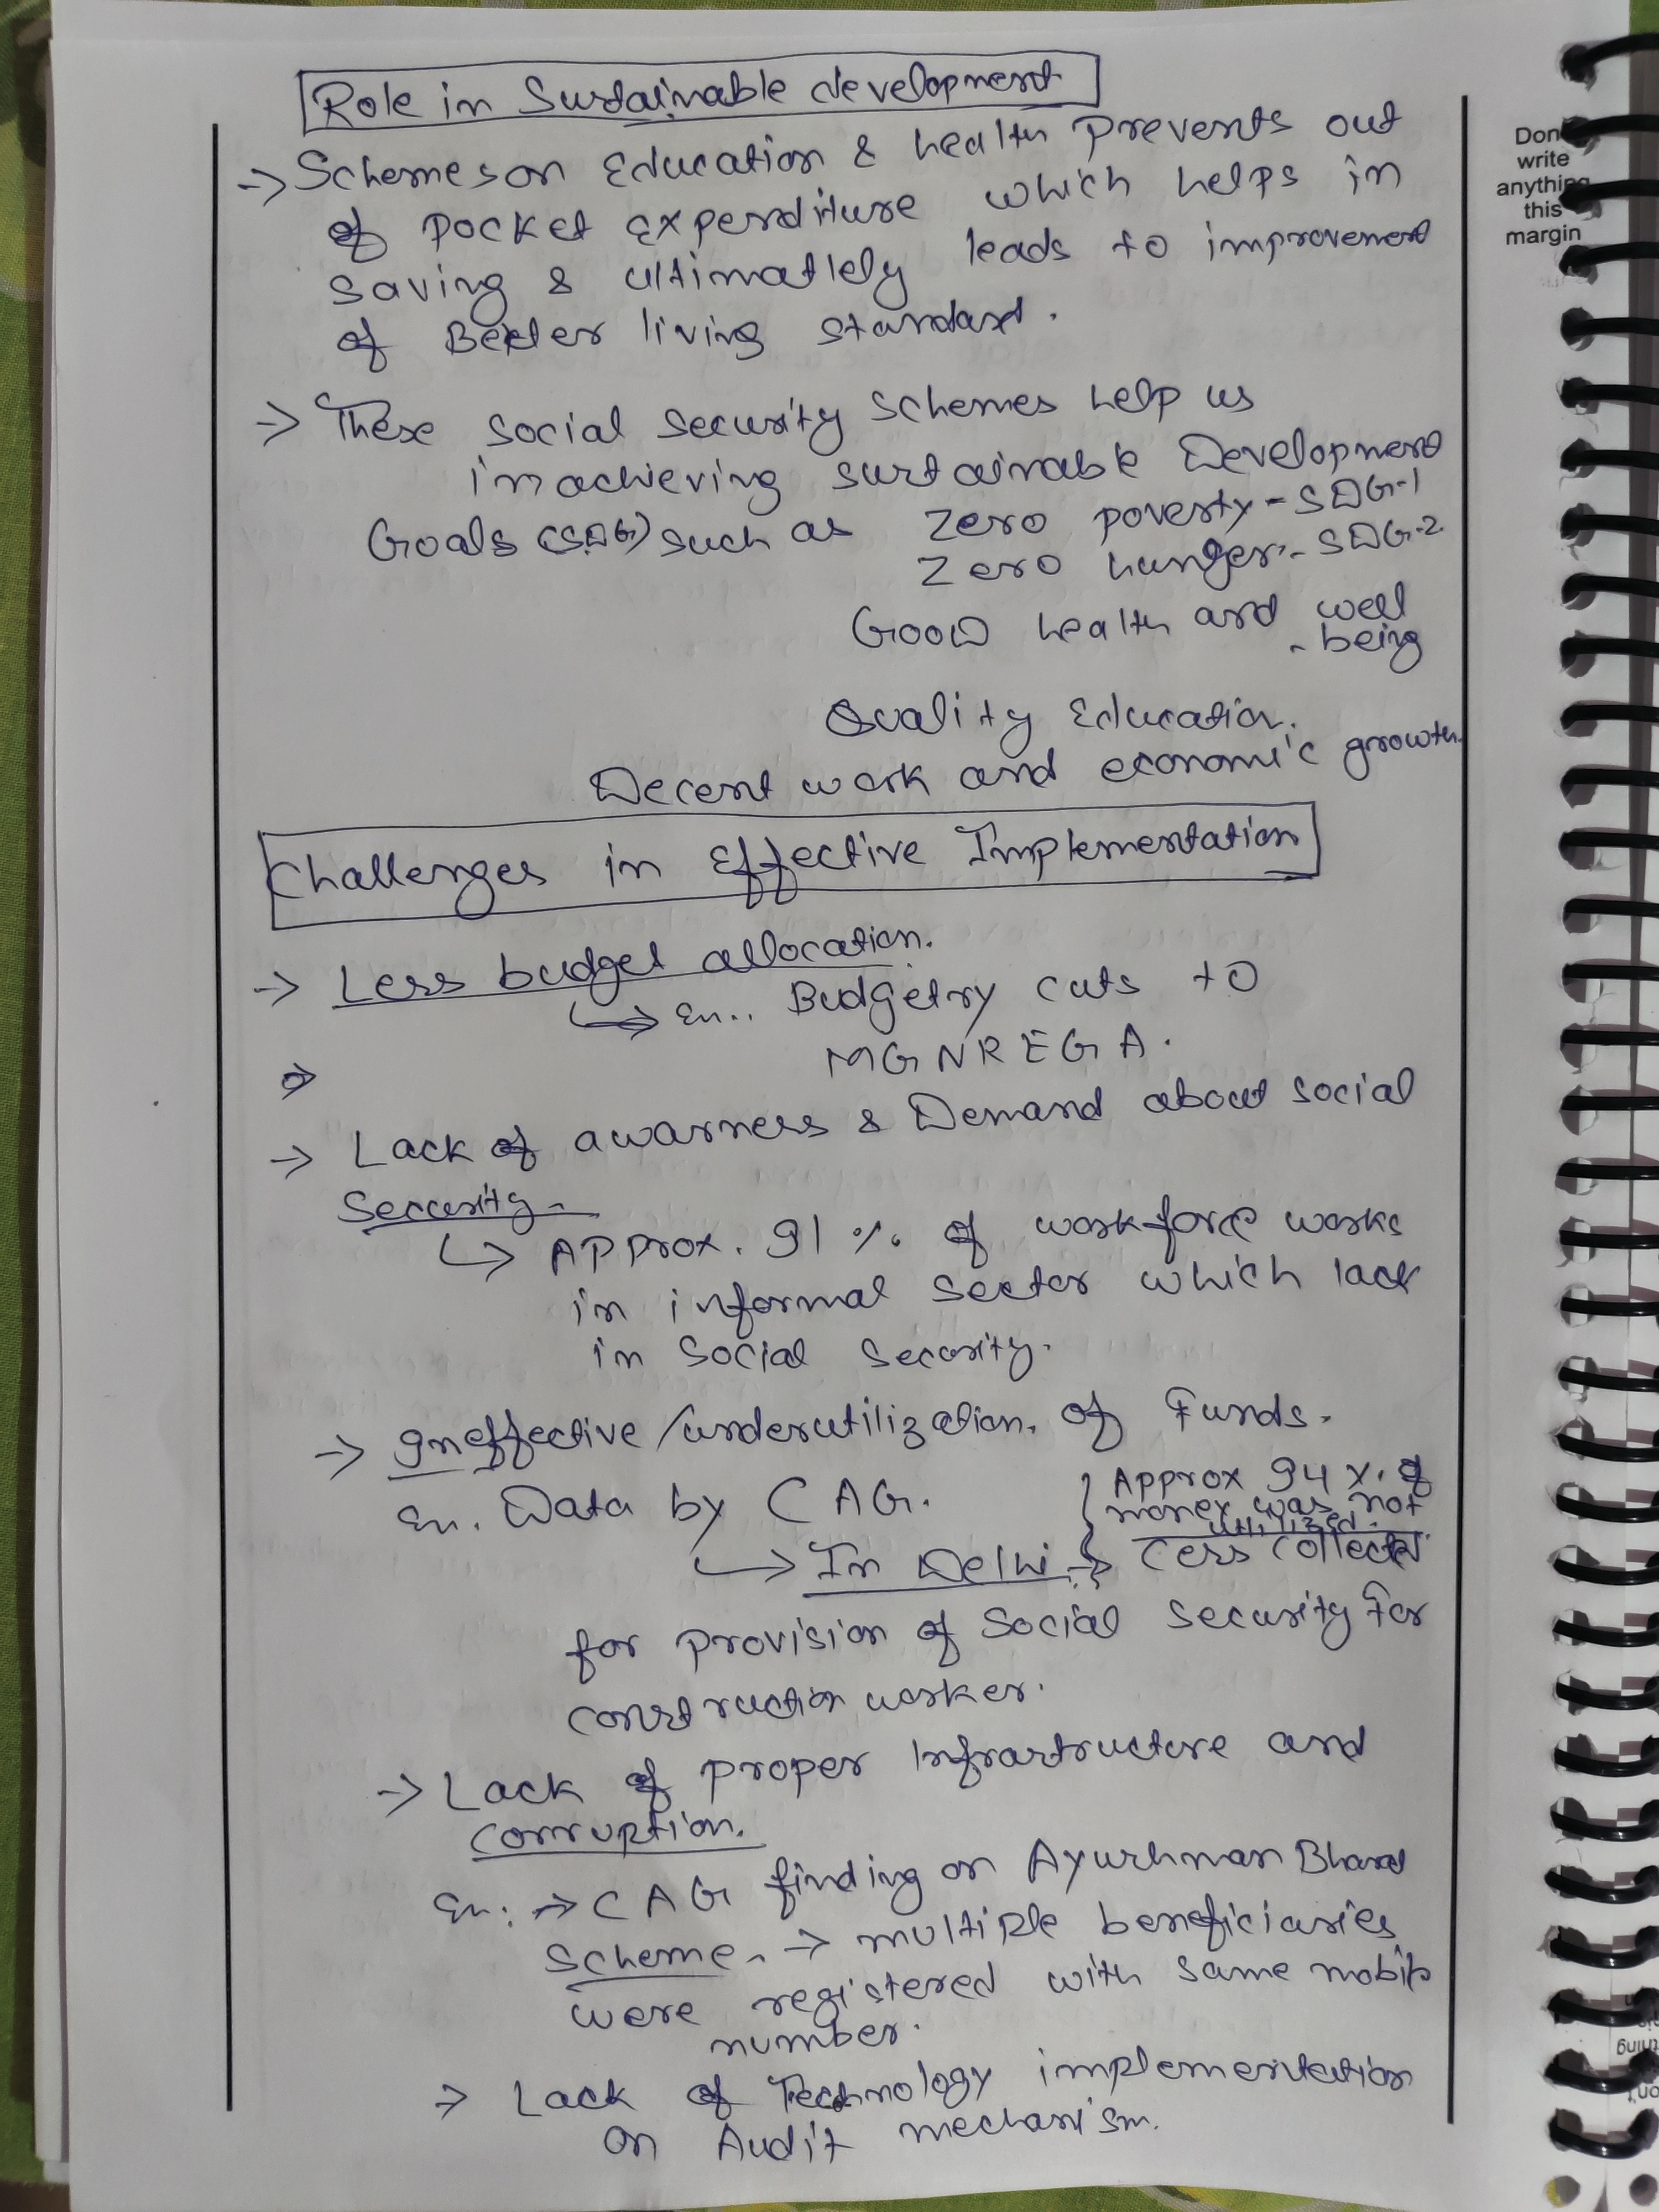 Role in Sustainable development
→ Schemes on Education & health prevents out
of pocket expenditure which helps in
saving & ultimatlely leads to improvement
of Better living standard.
→ These social security schemes help us
in achieving sustainable Development
Goals (SDG) such as Zero poverty - SDG-1
Zero hunger - SDG-2
Good health and well
- being
Quality Education.
Decent work and economic growth.
Challenges in Effective Implementation
→ Less budget allocation.
↳ En.. Budgetry cuts to
MGNREGA.
→
→ Lack of awarness & Demand about social
Security -
↳ Approx. 91 % of workforce works
in informal sector which lack
in social security.
→ Ineffective/underutilization. of Funds.
En. Data by CAG.
Approx 94 %. of
money was not
utilized.
↳ In Delhi → Cess collected
for provision of social security for
construction worker.
→ Lack of proper Infrastructure and
corruption.
En: → CAG finding on Ayushman Bharat
scheme. → multiple beneficiaries
were registered with same mobile
number.
→ Lack of Technology implementation
on Audit mechanism.
Don
write
anything
this
margin